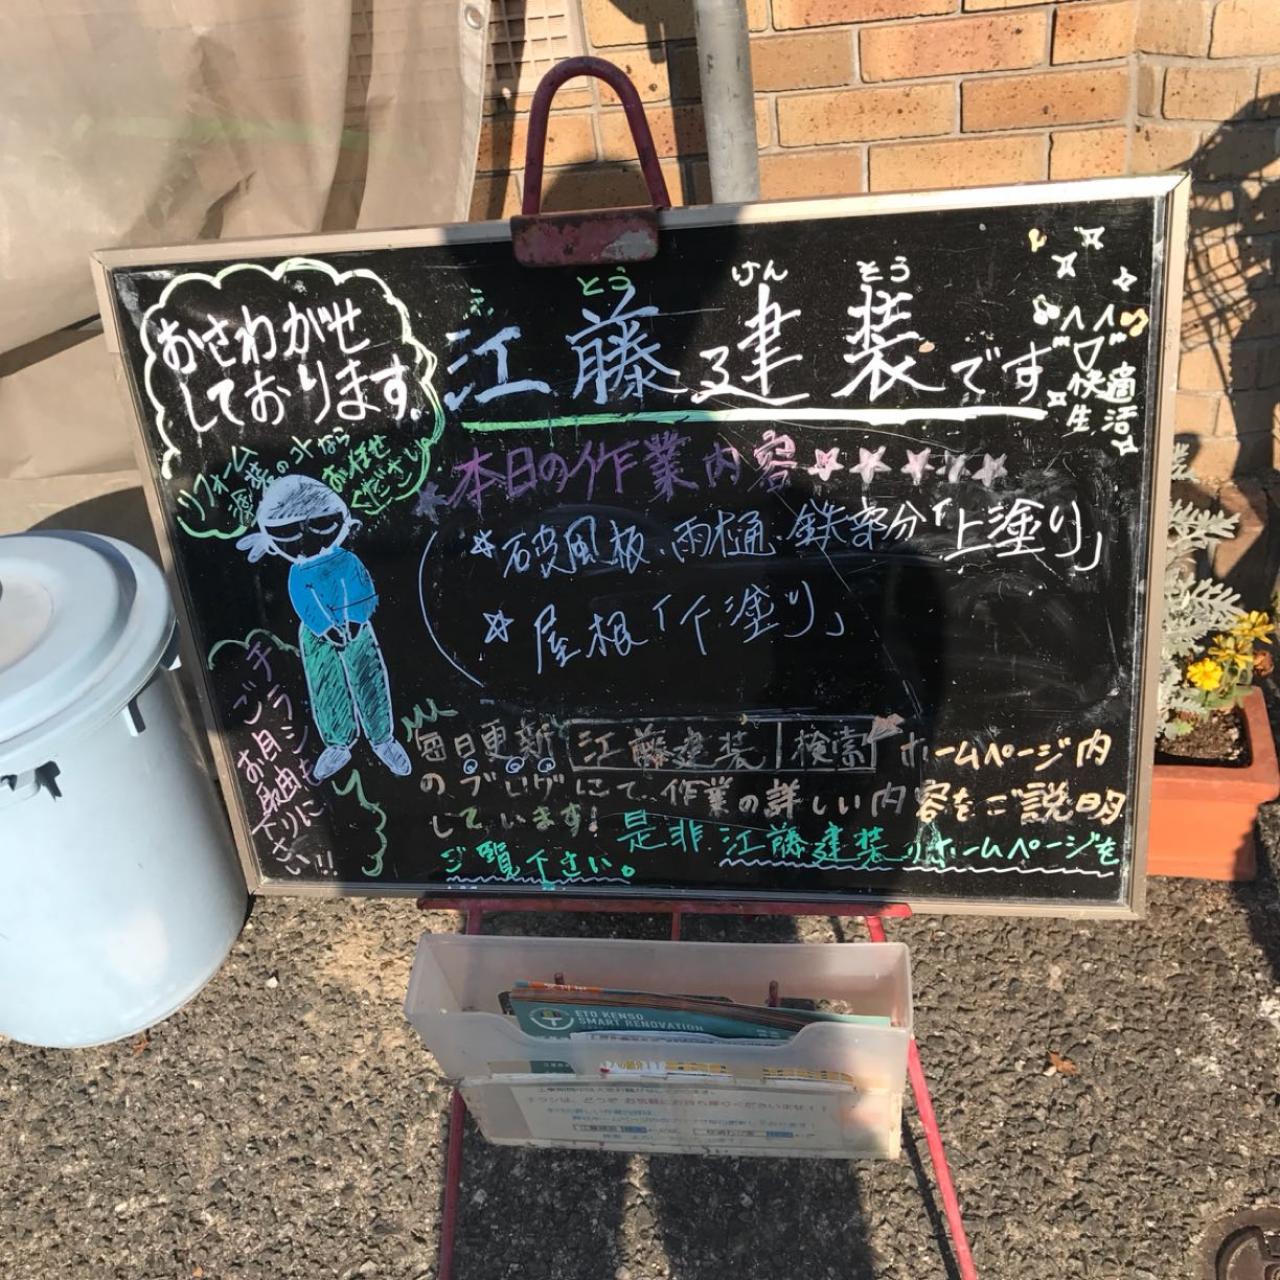 おさわがせ
しております。
リフォーム
塗装のコトなら
お任せ
ください
えとうけんそう
江藤建装です
快適
生活
★本日の作業内容★★★★★
☆破風板、雨樋、鉄部分「上塗り」
☆屋根「下塗り」
チラシも
ご自由に
お取り
下さい!!
毎日更新 江藤建装 検索 ホームページ内
のブログにて、作業の詳しい内容をご説明
しています! 是非江藤建装のホームページを
ご覧下さい。
ETO KENSO
SMART RENOVATION